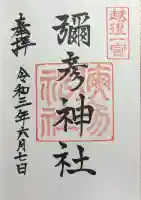 越後一宮
奉拝
彌彦神社
令和三年六月七日